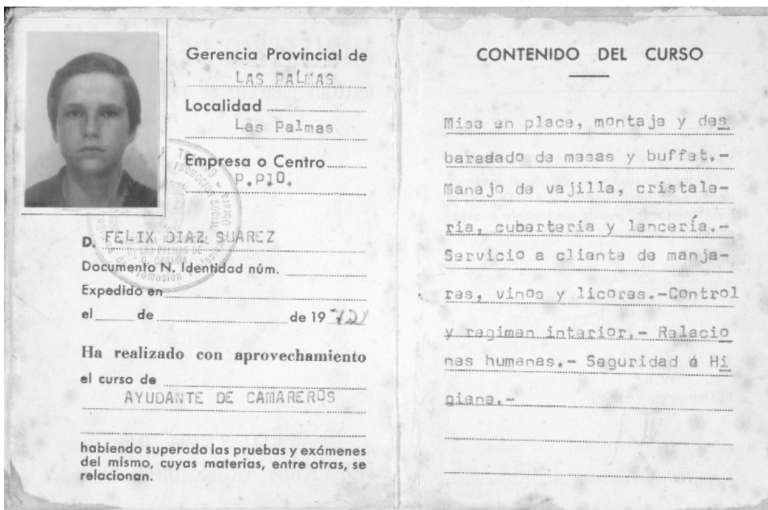 Gerencia Provincial de
LAS PALMAS
Localidad
Las Palmas
Empresa o Centro
P.PIO.
D. FELIX DIAZ SUAREZ
Documento N. Identidad núm.
Expedido en
el de de 19
Ha realizado con aprovechamiento
el curso de
AYUDANTE DE CAMAREROS
habiendo superado las pruebas y exámenes
del mismo, cuyas materias, entre otras, se
relacionan.
CONTENIDO DEL CURSO
Mise en place, montaje y des
barasado de mesas y buffet.-
Manejo de vajilla, cristale-
ria, cuberteria y lencería.-
Servicio a cliente de manja-
res, vinos y licores.-Control
y regimen interior.- Relacio
nes humanas.- Seguridad é Hi
giene.-